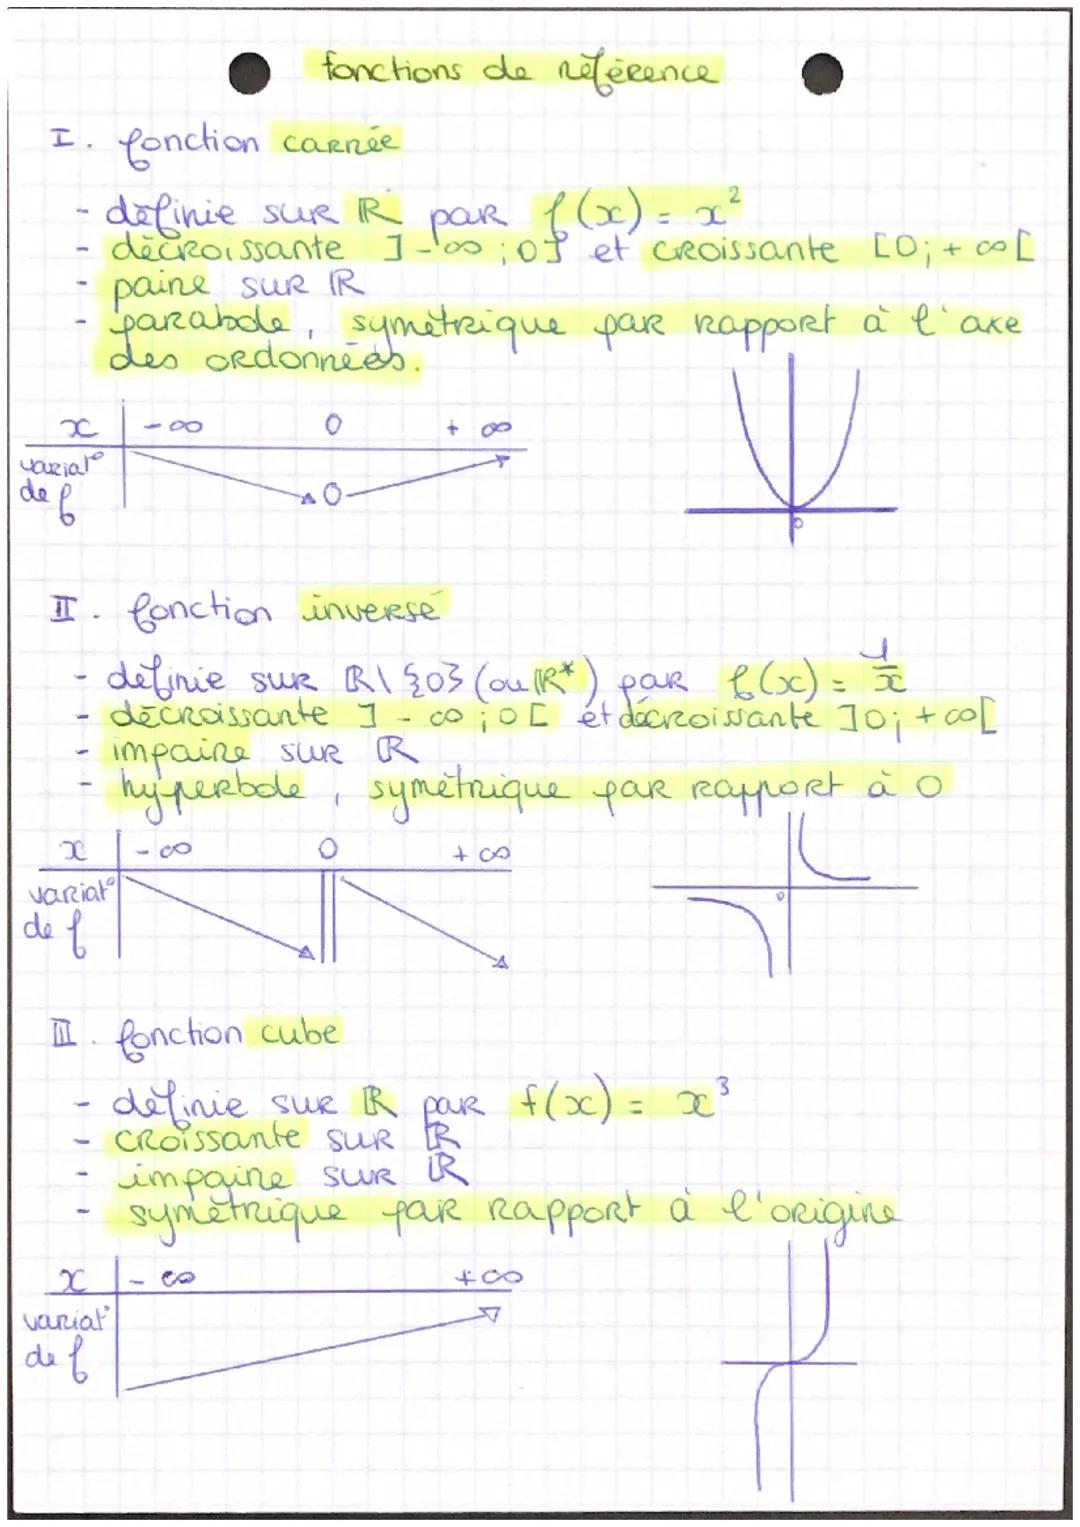 fonctions de référence
I. fonction carrée
- définie sur ℝ par f(x) = x²
- décroissante ]-∞ ; 0] et croissante [0 ; +∞[
- paire sur ℝ
- parabole, symétrique par rapport à l'axe
des ordonnées.
x -∞ 0 +∞
variat°
de f 0
0
II. fonction inverse
- définie sur ℝ\{0} (ou ℝ*) par f(x) = 1/x
- décroissante ]-∞ ; 0[ et décroissante ]0 ; +∞[
- impaire sur ℝ
- hyperbole, symétrique par rapport à 0
x -∞ 0 +∞
variat°
de f
0
III. fonction cube
- définie sur ℝ par f(x) = x³
- croissante sur ℝ
- impaire sur ℝ
- symétrique par rapport à l'origine
x -∞ +∞
variat°
de f